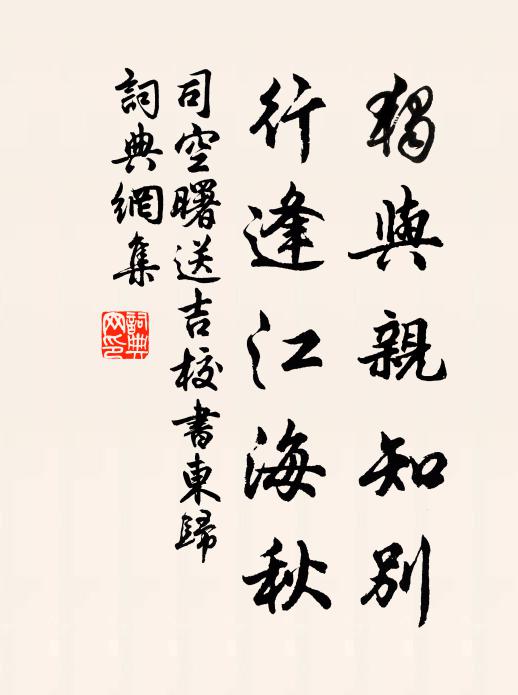 獨與親知別
行逢江海秋
司空曙送吉校書東歸
詞典網集
詞典網印